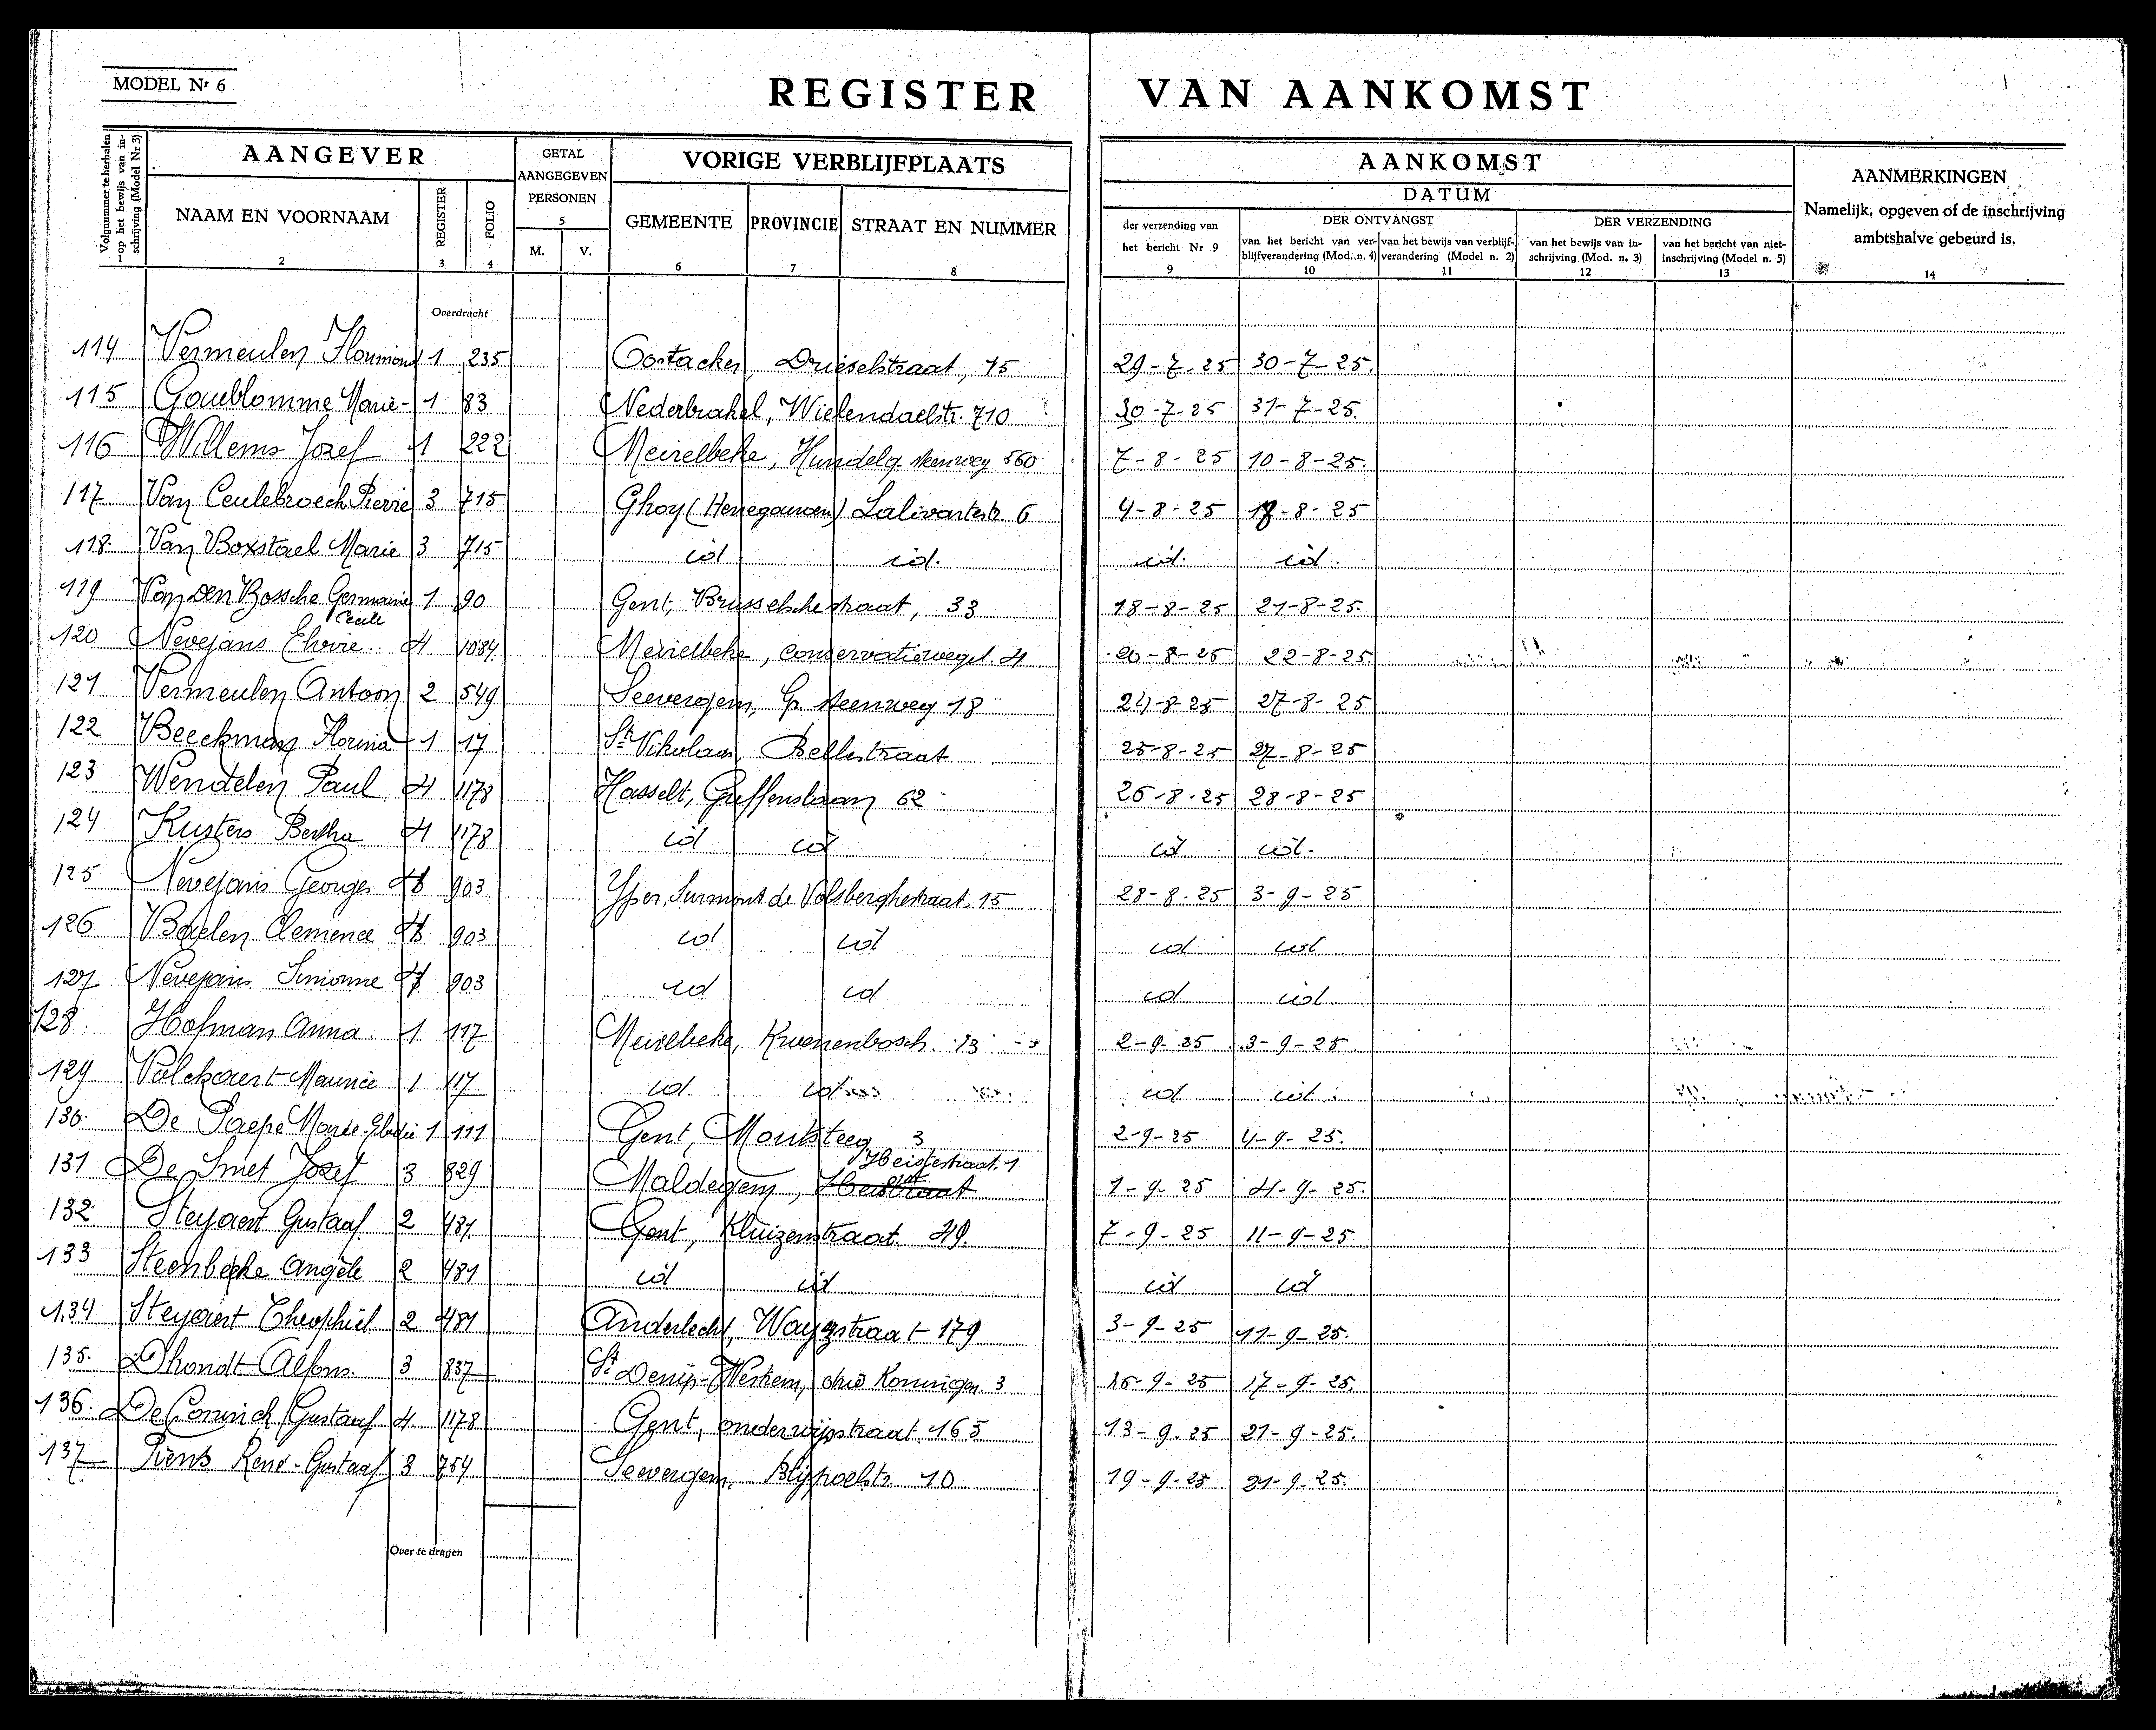 MODEL Nr 6
REGISTER VAN AANKOMST
Volgnummer te herhalen op het bewijs van inschrijving (Model Nr 3)
AANGEVER
GETAL AANGEGEVEN PERSONEN
VORIGE VERBLIJFPLAATS
AANKOMST
AANMERKINGEN
Namelijk, opgeven of de inschrijving ambtshalve gebeurd is.
DATUM
NAAM EN VOORNAAM REGISTER FOLIO M. V. GEMEENTE PROVINCIE STRAAT EN NUMMER
der verzending van het bericht Nr 9
DER ONTVANGST
DER VERZENDING
van het bericht van verblijfverandering (Mod. n. 4) van het bewijs van verblijfverandering (Model n. 2) van het bewijs van inschrijving (Mod. n. 3) van het bericht van niet-inschrijving (Model n. 5)
2 3 4 5 6 7 8 9 10 11 12 13 14
Overdracht
114 Vermeulen 1 235 Oostacker, Drieselstraat, 15 29-7-25 30-7-25.
115 Goublomme Marie- 1 83 Nederbrakel, Wielendaelstr. 710 30-7-25 31-7-25.
116 Willems Jozef 1 222 Meirelbeke, Hundelg. steenweg 560 7-8-25 10-8-25.
117 Van Ceulebroeck Pierre 3 715 Ghoy (Henegouwen) 6 4-8-25 -8-25
118. Van Boxstael Marie 3 715 id id. id. id.
119 Van den Bossche Germaine 1 90 Gent, Brusselschestraat, 33 18-8-25 21-8-25.
Cecile
120 Nevejans Elvire. 4 1084 Meirelbeke, conservatiewegel. 4 20-8-25 22-8-25
121 Vermeulen Antoon 2 549 Seevergem, Gr. steenweg 18 24-8-25 27-8-25
122 Beeckman Florina 1 17 St Nikolaas, Bellestraat 25-8-25 27-8-25
123 Wendelen Paul 4 1178 Hasselt, Guffenslaan 62 26-8-25 28-8-25
124 Kusters Bertha 4 1178 id id id id.
125 Nevejans Georges 903 Yper, Surmont de Volsberghestraat 15 28-8-25 3-9-25
126 Baelen Clemence 903 id id id id
127 Nevejans Simonne 903 id id id id.
128. Hofman Anna. 1 117 Meirelbeke, Kwenenbosch. 13 2-9-25 3-9-25.
129 Valckaert Maurice 1 117 id id id id.
130. De Paepe Marie 1 111 Gent, Monksteeg 3 2-9-25 4-9-25.
Heistestraat. 1
131 De Smet Jozef 3 829 Maldegem, 1-9-25 4-9-25.
132 Steyaert Gustaaf. 2 481 Gent, Kluizenstraat. 49. 7-9-25 11-9-25.
133 Steenbeke Angèle 2 481 id id id id
134 Steyaert Theophiel 2 481 Anderlecht, Wayezstraat 179 3-9-25 11-9-25.
135. Dhondt Alfons. 3 837 St Denijs-Westrem, drie Koningen 3 16-9-25 17-9-25.
136. De Connick Gustaaf 4 1178 Gent, onderwijsstraat, 165 13-9-25 21-9-25.
137 Piens René-Gustaaf 3 754 Seevergem, Blijpoelstr. 10 19-9-25 21-9-25.
Over te dragen